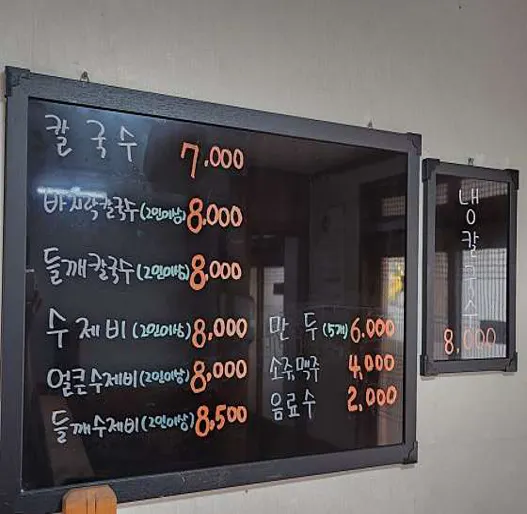 칼국수 7,000
바지락칼국수(2인이상) 8,000
들깨칼국수(2인이상) 8,000
수제비(2인이상) 8,000
얼큰수제비(2인이상) 8,000
들깨수제비(2인이상) 8,500
만두(5개) 6,000
소주,맥주 4,000
음료수 2,000
냉칼국수
8,000